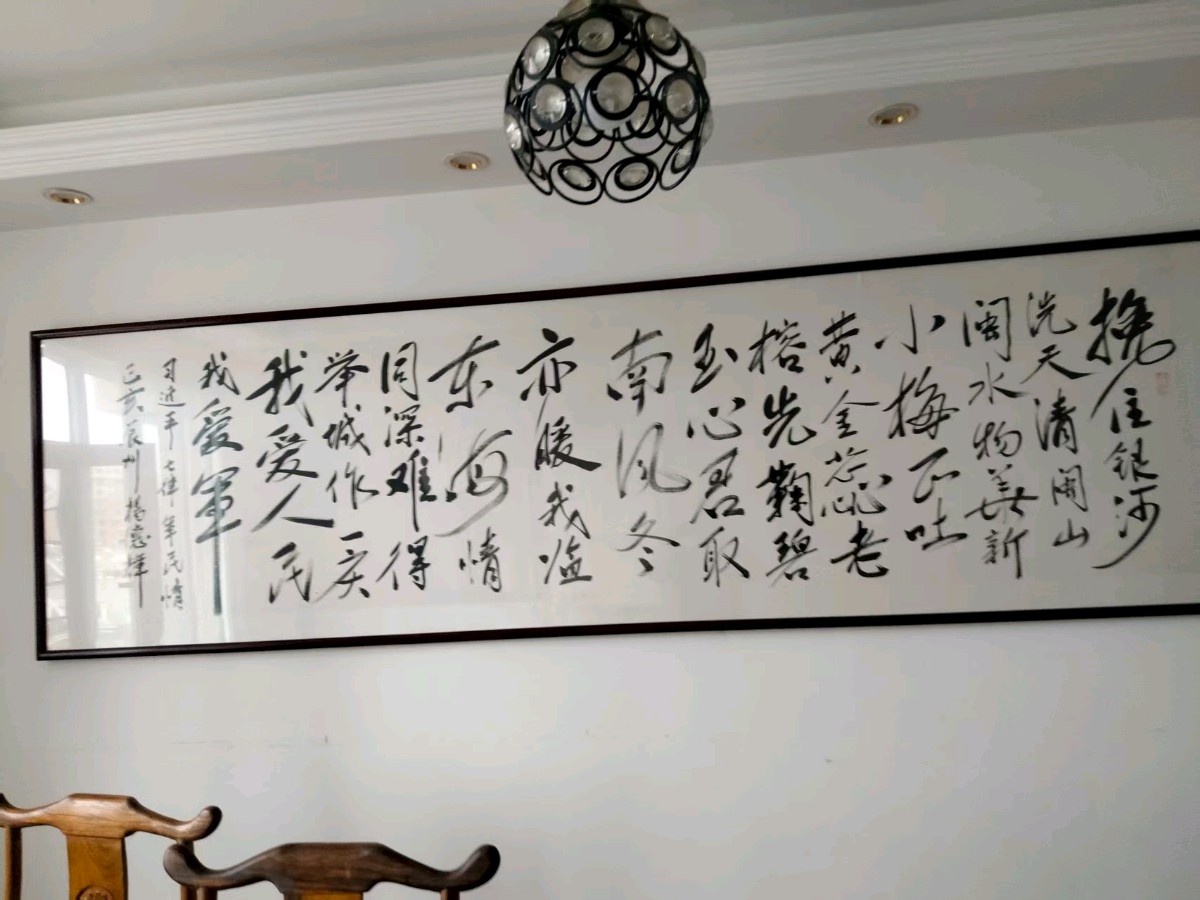 挽住银河
洗天清闽山
闽水物華新
小梅正吐
黄金蕊老
榕先鞠碧
玉心君取
南风冬
亦暖我临
东海情
同深难得
举城作一庆
我爱人民
我爱軍
习近平七律军民情
己亥